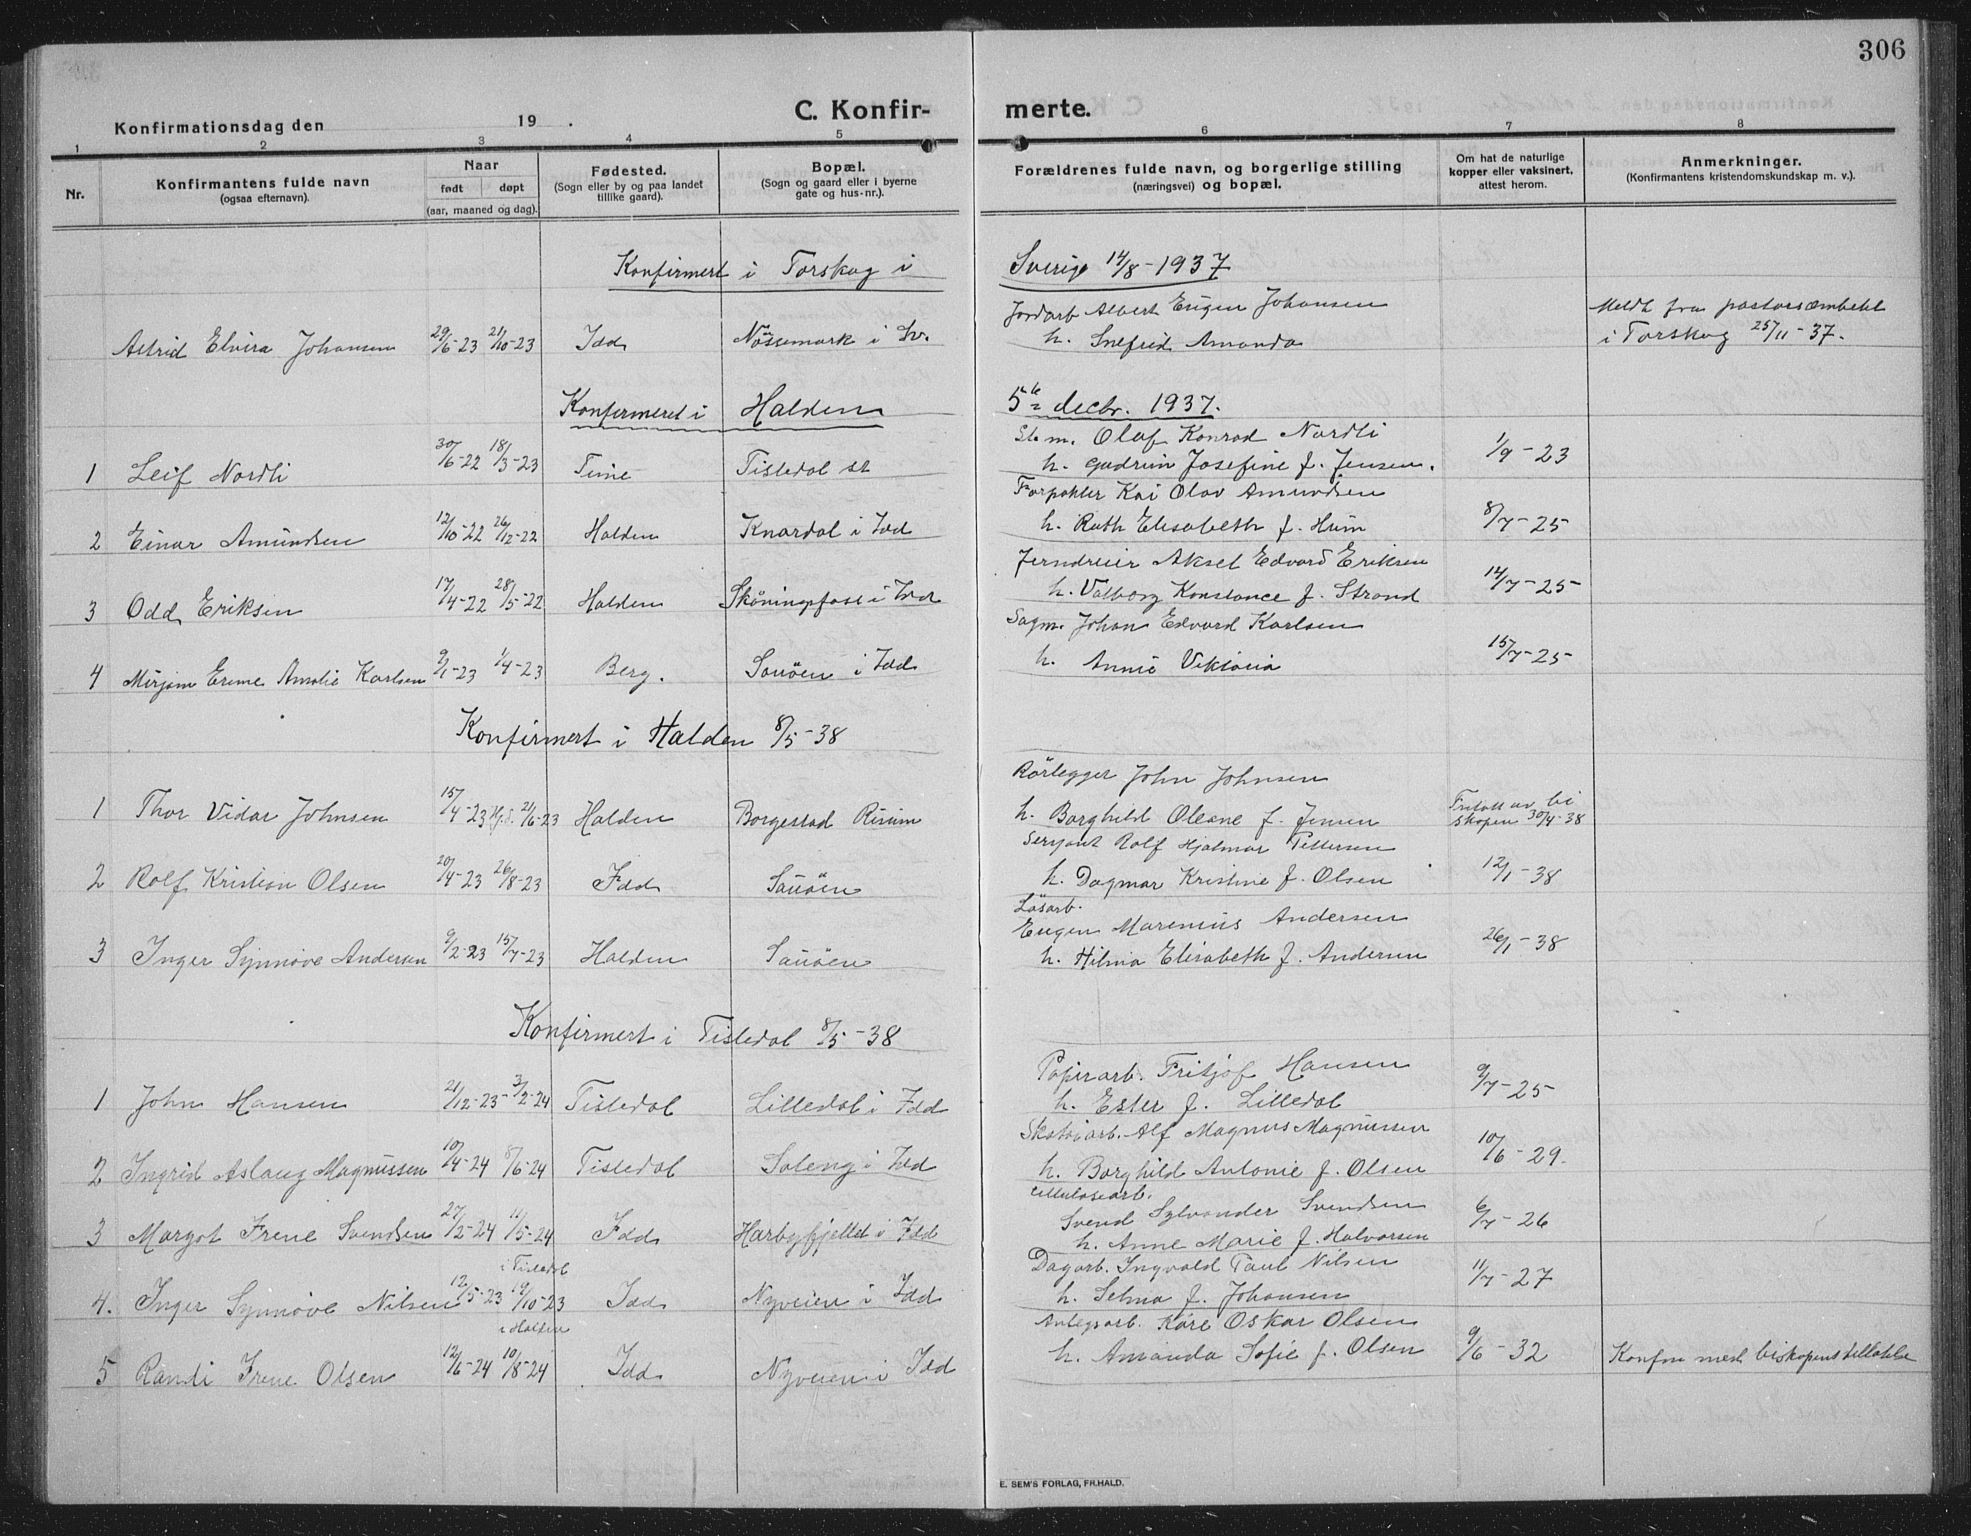 306
C. Konfirmerte.
Konfirmationsdag den 19 .
1 2 3 4 5 6 7 8
Nr.
Konfirmantens fulde navn
(ogsaa efternavn).
Naar
født døpt
(aar, maaned og dag).
Fødested.
(Sogn eller by og paa landet
tillike gaard).
Bopæl.
(Sogn og gaard eller i byerne
gate og hus-nr.).
Forældrenes fulde navn, og borgerlige stilling
(næringsvei) og bopæl.
Om hat de naturlige
kopper eller vaksinert,
attest herom.
Anmerkninger.
(Konfirmantens kristendomskundskap m. v.).
Konfirmert i Torskog i Sverige 14/8-1937
Jordarb Albert Eugen Johansen
Meldt fra pastorsembetet
Astrid Elvira Johansen 29/6-23 21/10-23 Idd Nössemark i Sv. h. Snefrid Amanda i Torskog 25/11-37.
Konfirmeret i Halden 5te decbr. 1937.
St.m. Olaf Konrad Nordli
1 Leif Nordli 30/6-22 18/3-23 Tune Tistedal st h. Gudrun Josefine f. Jensen. 1/9-23
Forpakter Kai Olav Amundsen
2 Einar Amundsen 12/10-22 26/12-22 Halden Knardal i Idd h. Ruth Elisabeth f. Hum 8/7-25
Jerndreier Aksel Edvard Eriksen
3 Odd Eriksen 17/4-22 28/5-22 Halden Skåningsfoss i Idd h. Valborg Konstance f. Strand 14/7-25
Sagm. Johan Edvard Karlsen
4 Mirjam Erene Amalie Karlsen 9/1-23 1/4-23 Berg. Sauöen i Idd h. Annie Viktoria 15/7-25
Konfirmert i Halden 8/5-38
Rörlegger John Johnsen
1 Thor Vidar Johnsen 15/4-23 Hj.d. 21/6-23 Halden Borgestad Risum h. Borghild Oleane f. Jensen Fritatt av biskopen 30/4-38
Sersjant Rolf Hjalmar Pettersen
2 Rolf Kristian Olsen 20/4-23 26/8-23 Idd Sauöen h. Dagmar Kristine f. Olsen 12/1-38
Lösarb.
Eugen Marenius Andersen
3 Inger Synnöve Andersen 9/2-23 15/7-23 Halden Sauöen h. Hilma Elisabeth f. Andersen 26/1-38
Konfirmert i Tistedal 8/5-38
Papirarb. Fritjof Hansen
1 John Hansen 21/12-23 3/2-24 Tistedal Lilledal i Idd h. Ester f. Lilledal 9/7-25
Skotöiarb. Alf Magnus Magnussen
2 Ingrid Aslaug Magnussen 10/4-24 8/6-24 Tistedal Soleng i Idd h. Borghild Antonie f. Olsen 10/6-29.
Cellulosearb.
Svend Sylvander Svendsen
3 Margot Irene Svendsen 27/2-24 11/5-24 Idd Harbyfjellet i Idd h. Anne Marie f. Halvorsen 6/7-26
i Tistedal
Dagarb. Ingvald Paul Nilsen
4. Inger Synnöve Nilsen 12/5-23 14/10-23 Idd Nyveien i Idd h. Selma f. Johansen 11/7-27
i Halden
Anlegsarb. Kåre Oskar Olsen
5 Randi Irene Olsen 12/6-24 10/8-24 Idd Nyveien i Idd h. Amanda Sofie f. Olsen 9/6-32 Konfm med biskopens tillatelse
E. SEM'S FORLAG, FR.HALD.